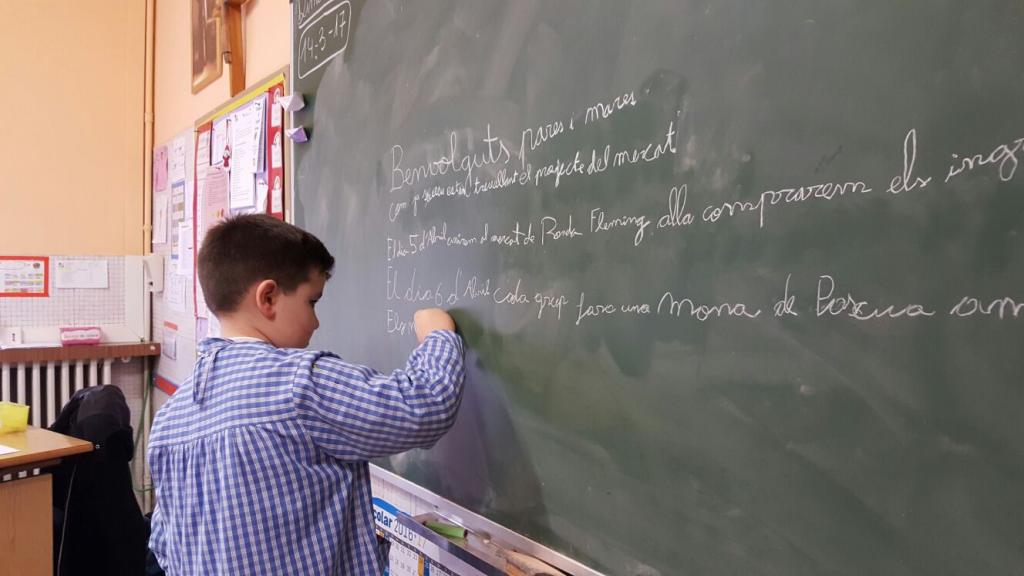 14-3-17
Benvolguts pares i mares
com ja sabeu estem treballant el projecte del mercat
El dia 5 d'Abril anirem al mercat de Ronda Fleming, alla comprarem els ingr
El dia 6 d'Abril cada grup fara una mona de Pascua am
El
olar 2016-17